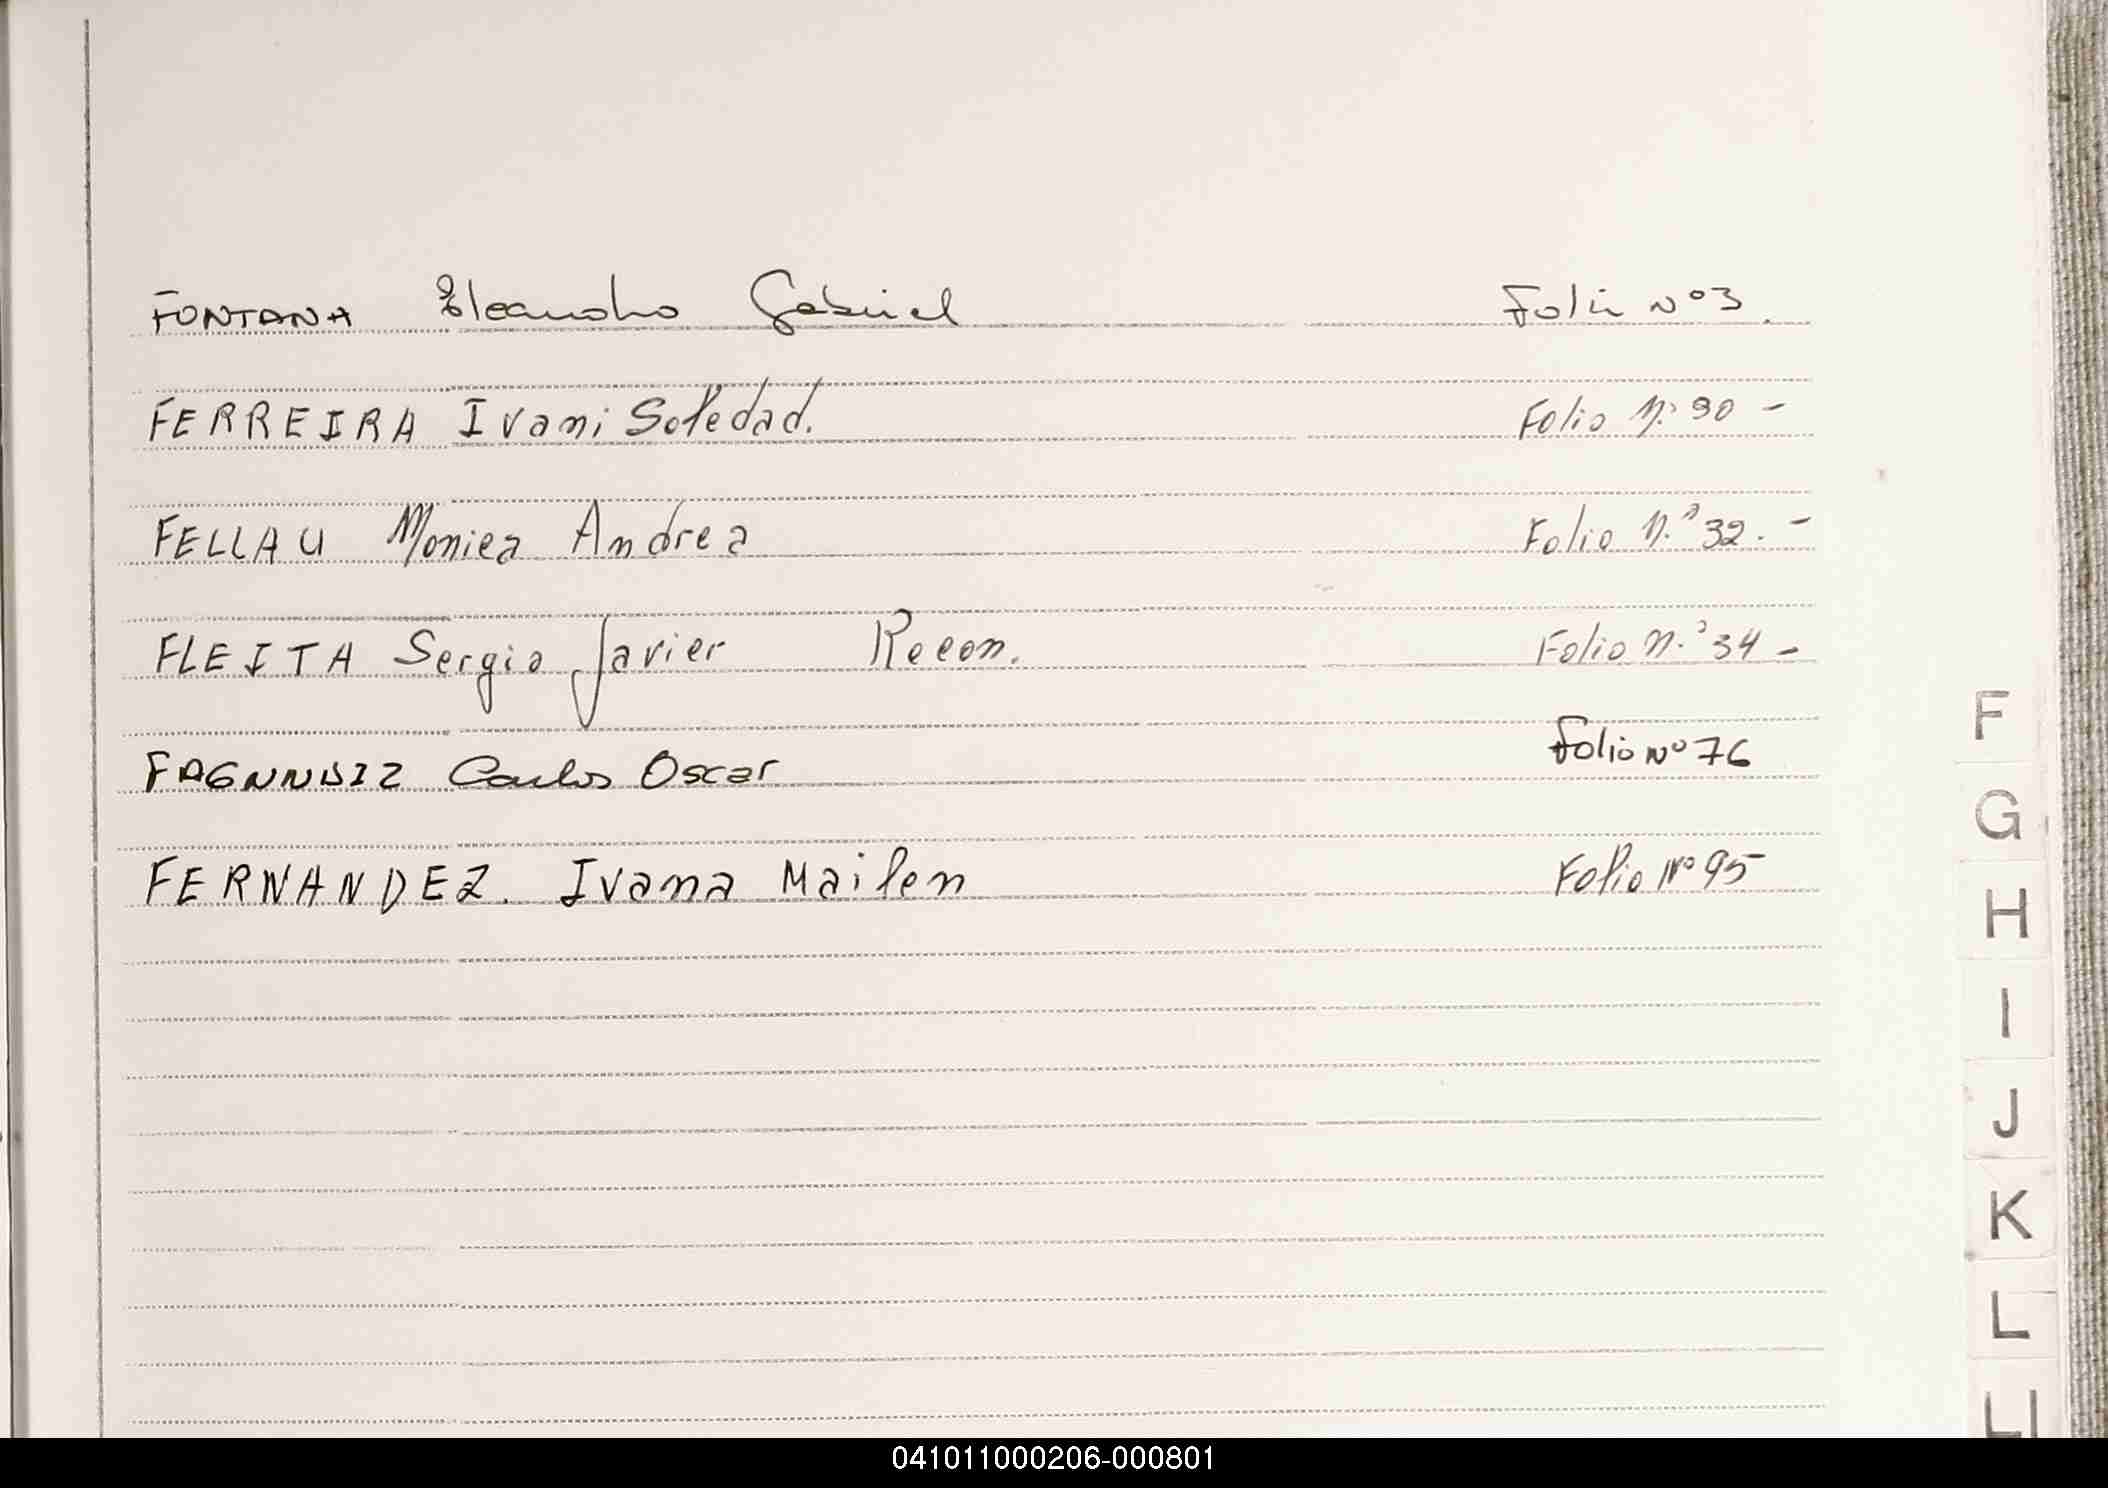 FONTANA Eleandro Gabriel Folio Nº 3.
FERREIRA Ivani Soledad. Folio N.º 30 -
FELLAU Monica Andrea Folio N.º 32. -
FLEITA Sergio Javier Recon. Folio N.º 34 -
Carlos Oscar Folio Nº 76
FERNANDEZ. Ivana Mailen Folio Nº 95
F
G
H
I
J
K
L
041011000206-000801